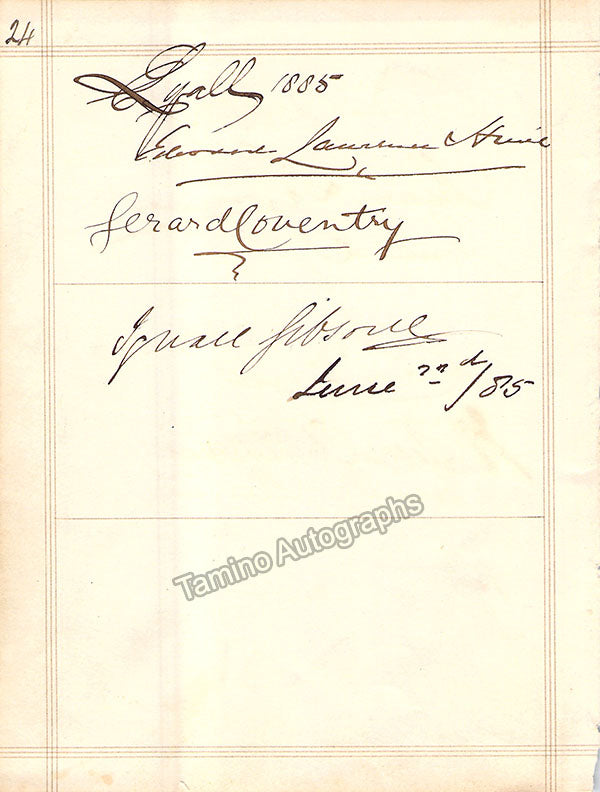 24
Lyall 1885
Edward Lawrence
Gerard Coventry
Ignace Gibsone
June 22d/85
Tamino Autographs